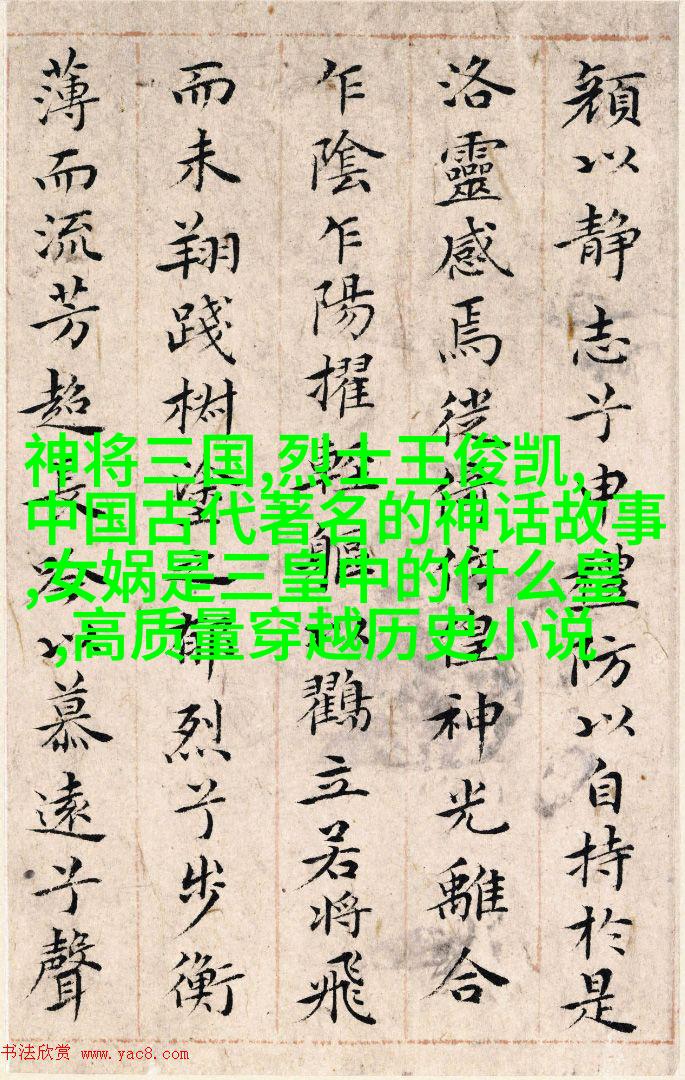 顔以静志兮申禮防以自持於是
洛靈感焉徙神光離合
乍陰乍陽擢輕軀以鸛立若將飛
而未翔踐椒塗之烈兮步衡
薄而流芳超長吟以慕遠兮聲
神将三国,烈士王俊凯,
中国古代著名的神话故事
,女娲是三皇中的什么皇
,高质量穿越历史小说
书法欣赏 www.yac8.com